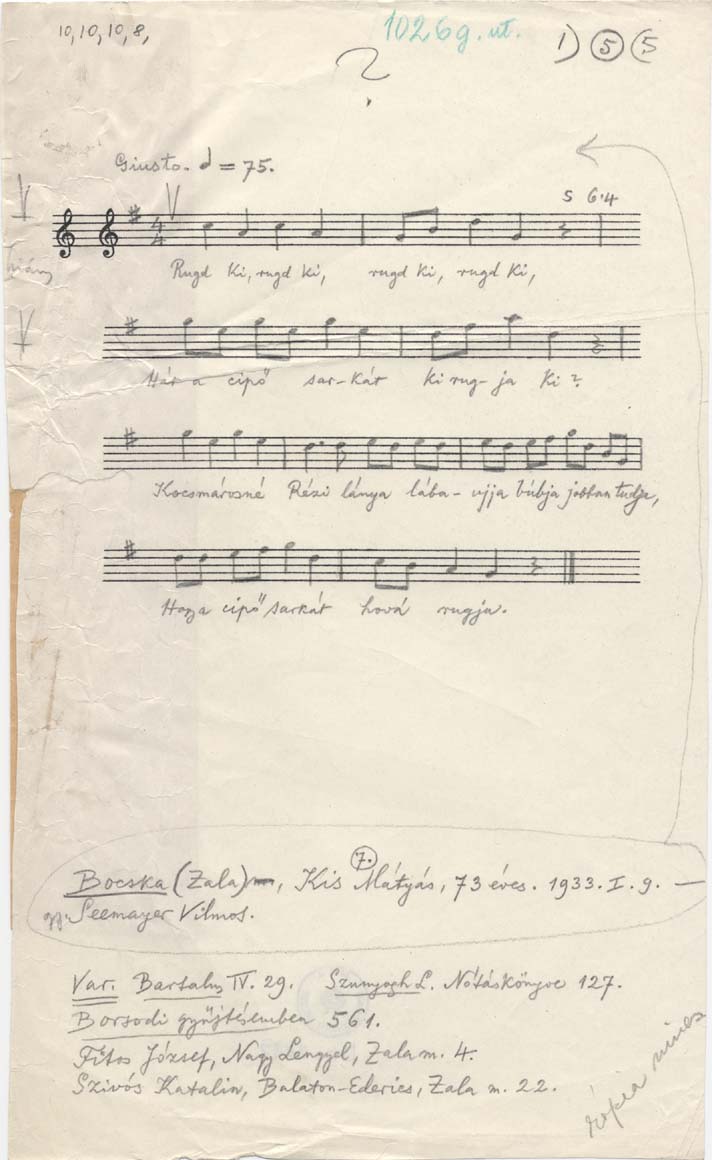 10, 10, 10, 8,
1026g. ut.
1) 5 (5
?
Giusto. = 75.
5 6·4
4
4
Rugd ki, rugd ki, rugd ki, rugd ki,
Hát a cipő sar-kát ki rug-ja ki?
Kocsmárosné Rézi lánya lába-ujja búbja jobban tudja,
Hogy a cipő sarkát hová rugja.
7.
Bocska (Zala), Kis Mátyás, 73 éves. 1933. I. 9. —
gy. Seemayer Vilmos.
Var. Bartalus IV. 29. Szunyogh L. Nótáskönyve 127.
Borsodi gyűjtésemben 561.
Fitos József, Nagy Lengyel, Zala m. 4.
Szivós Katalin, Balaton-Ederics, Zala m. 22.
kópia nincs